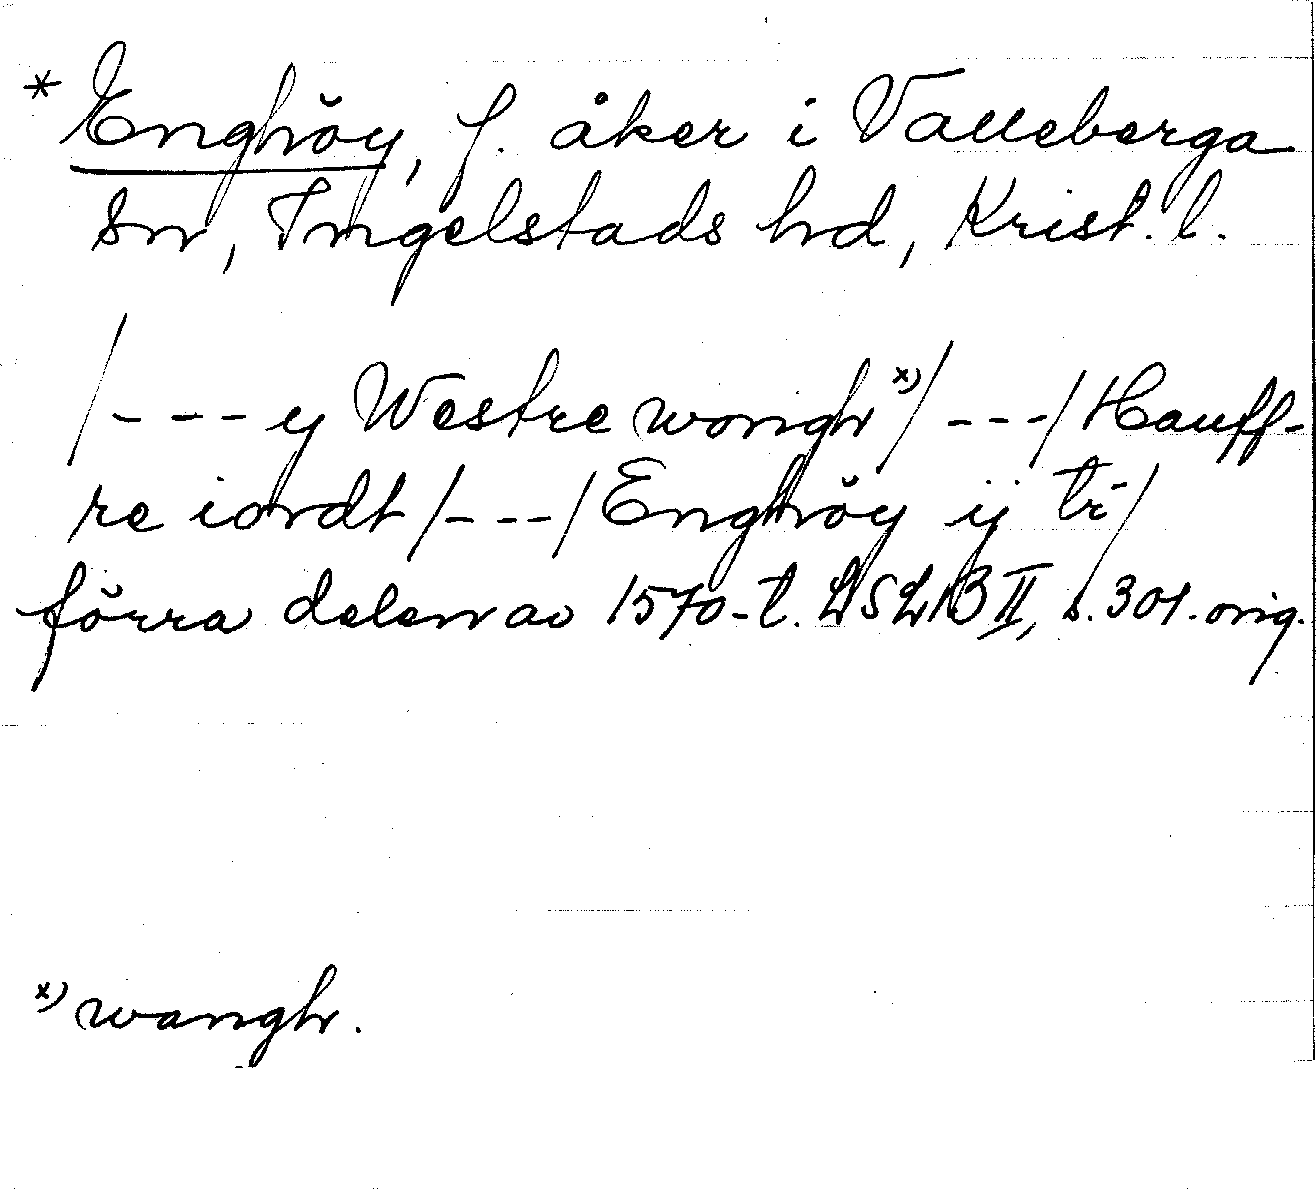 * Enghöy, f. åker i Valleberga
sn, Ingelstads hd, Krist. l.
/--- y Westre wongh x)/---/ Hauff-
re iordt /---/ Enghöy ij tr̄/
förra delen av 1570-t. LSLB II, s. 301. orig.
x) wangh.